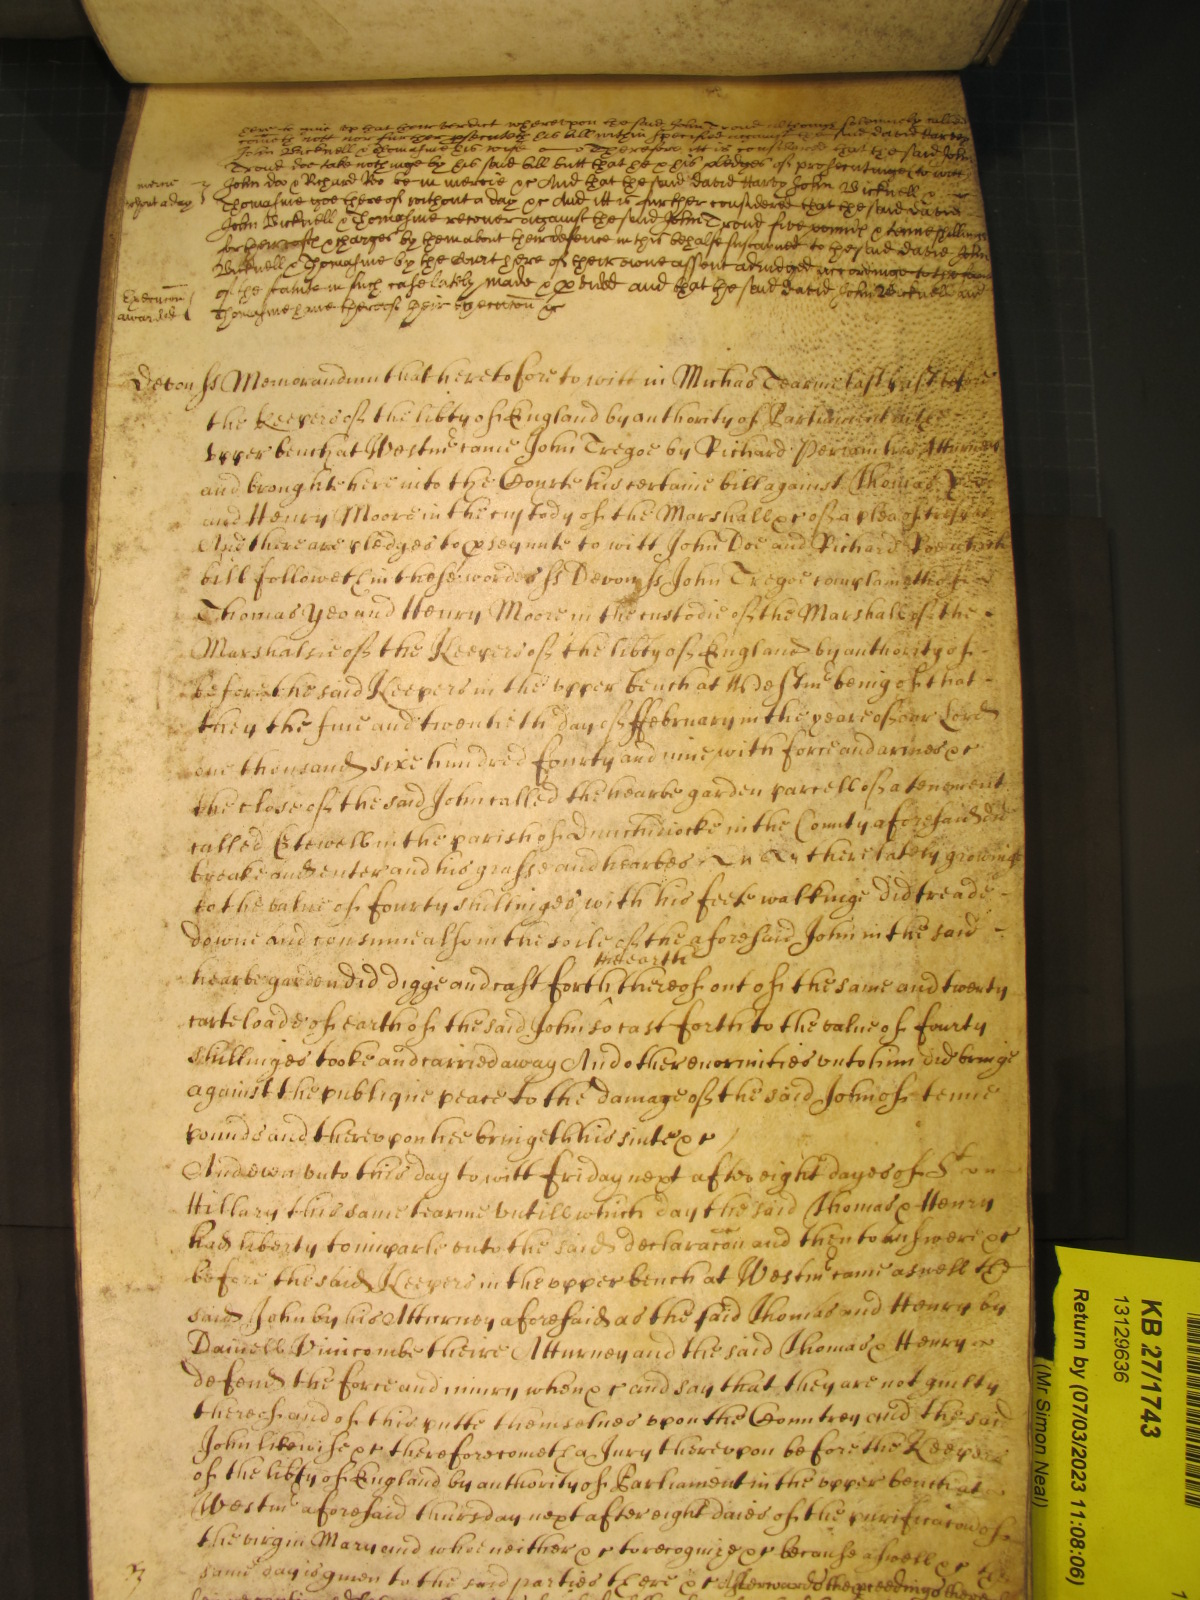 here to give up that their verdict whereupon the said John Trond solemnly called
cometh nott nor further prosecuteth his bill within specified against the said David Harvy
John Bicknell & Thomasine his wife Therefore itt is considered that the said John
Trond doe take nothinge by his said bill butt that he & his pledges of prosecutinge to witt
John Doe & Richard Roe be in mercie &c And that the said David Harvy John Bicknell &
Thomasine goe thereof without a day &c And itt is further considered that the said David
John Bicknell & Thomasine recover against the said John Trond five pounds & tenne shillings
for their costs & charges by them about their defence in this behalfe sustained to the said David John
Bicknell & Thomasine by the Court here of their owne assent adiudged accordinge to the
of the statute in such case lately made & pvided and that the said David John Bicknell and
Thomasine have thereof their execucon &c
mercie
without a day
Execucon
awarded
Devon ss Memorandum that heretofore to witt in Michas Tearme last past before
the Keepers of the libty of England by authority of Parliament in the
upper bench at Westmr came John Tregoe by Richard his Atturney
and brought here into the Courte his certaine bill against Thomas Yeo
and Henry Moore in the custody of the Marshall &c of a plea of trespas
And there are pledges to psequute to witt John Doe and Richard Roe which
bill followeth in these wordes ss Devon ss John Tregoe complaineth of
Thomas Yeo and Henry Moore in the custodie of the Marshall of the
Marshalsie of the Keepers of the libty of England by authority of
before the said Keepers in the upper bench at Westmr being of that
they the five and twentieth day of ffebruary in the yeare of our Lord
one thousand sixe hundred fourty and nine with force and armes &c
the close of the said John called the hearbe garden parcell of a tenement
called Etewell in the parish of Dunchidiocke in the County aforesaid did
breake and enter and his grasse and hearbes there lately growinge
to the value of fourty shillinges with his feete walkinge did treade
downe and consume also in the soile of the aforesaid John in the said
hearbe garden did digge and cast forth the earth thereof out of the same and twenty
carte loades of earth of the said John so cast forth to the value of fourty
shillinges tooke and carried away And other enormities unto him did bringe
against the publique peace to the damage of the said John of tenne
pounds and thereupon hee bringeth his suite &c
And even unto this day to witt friday next after eight dayes of St
Hillary this same tearme untill which day the said Thomas & Henry
had liberty to imparle unto the said declaracon and then to answere &c
before the said Keepers in the upper bench at Westmr came aswell the
said John by his Atturney aforesaid as the said Thomas and Henry by
Daniell Vinicombe theire Atturney and the said Thomas & Henry
defend the force and iniury when &c and say that they are not guilty
thereof and of this putte themselves upon the Countrey and the said
John likewise &c therefore cometh a Jury thereupon before the Keepers
of the libty of England by authority of Parliament in the upper bench at
Westmr aforesaid thursday next after eight daies of the purificacon of
the virgin Mary and who neither &c to recognize &c because aswell &c the
same day is given to the said parties there &c Afterwards the pceedings thereof
KB 27/1743
13129636
Return by (07/03/2023 11:08:06)
(Mr Simon Neal)